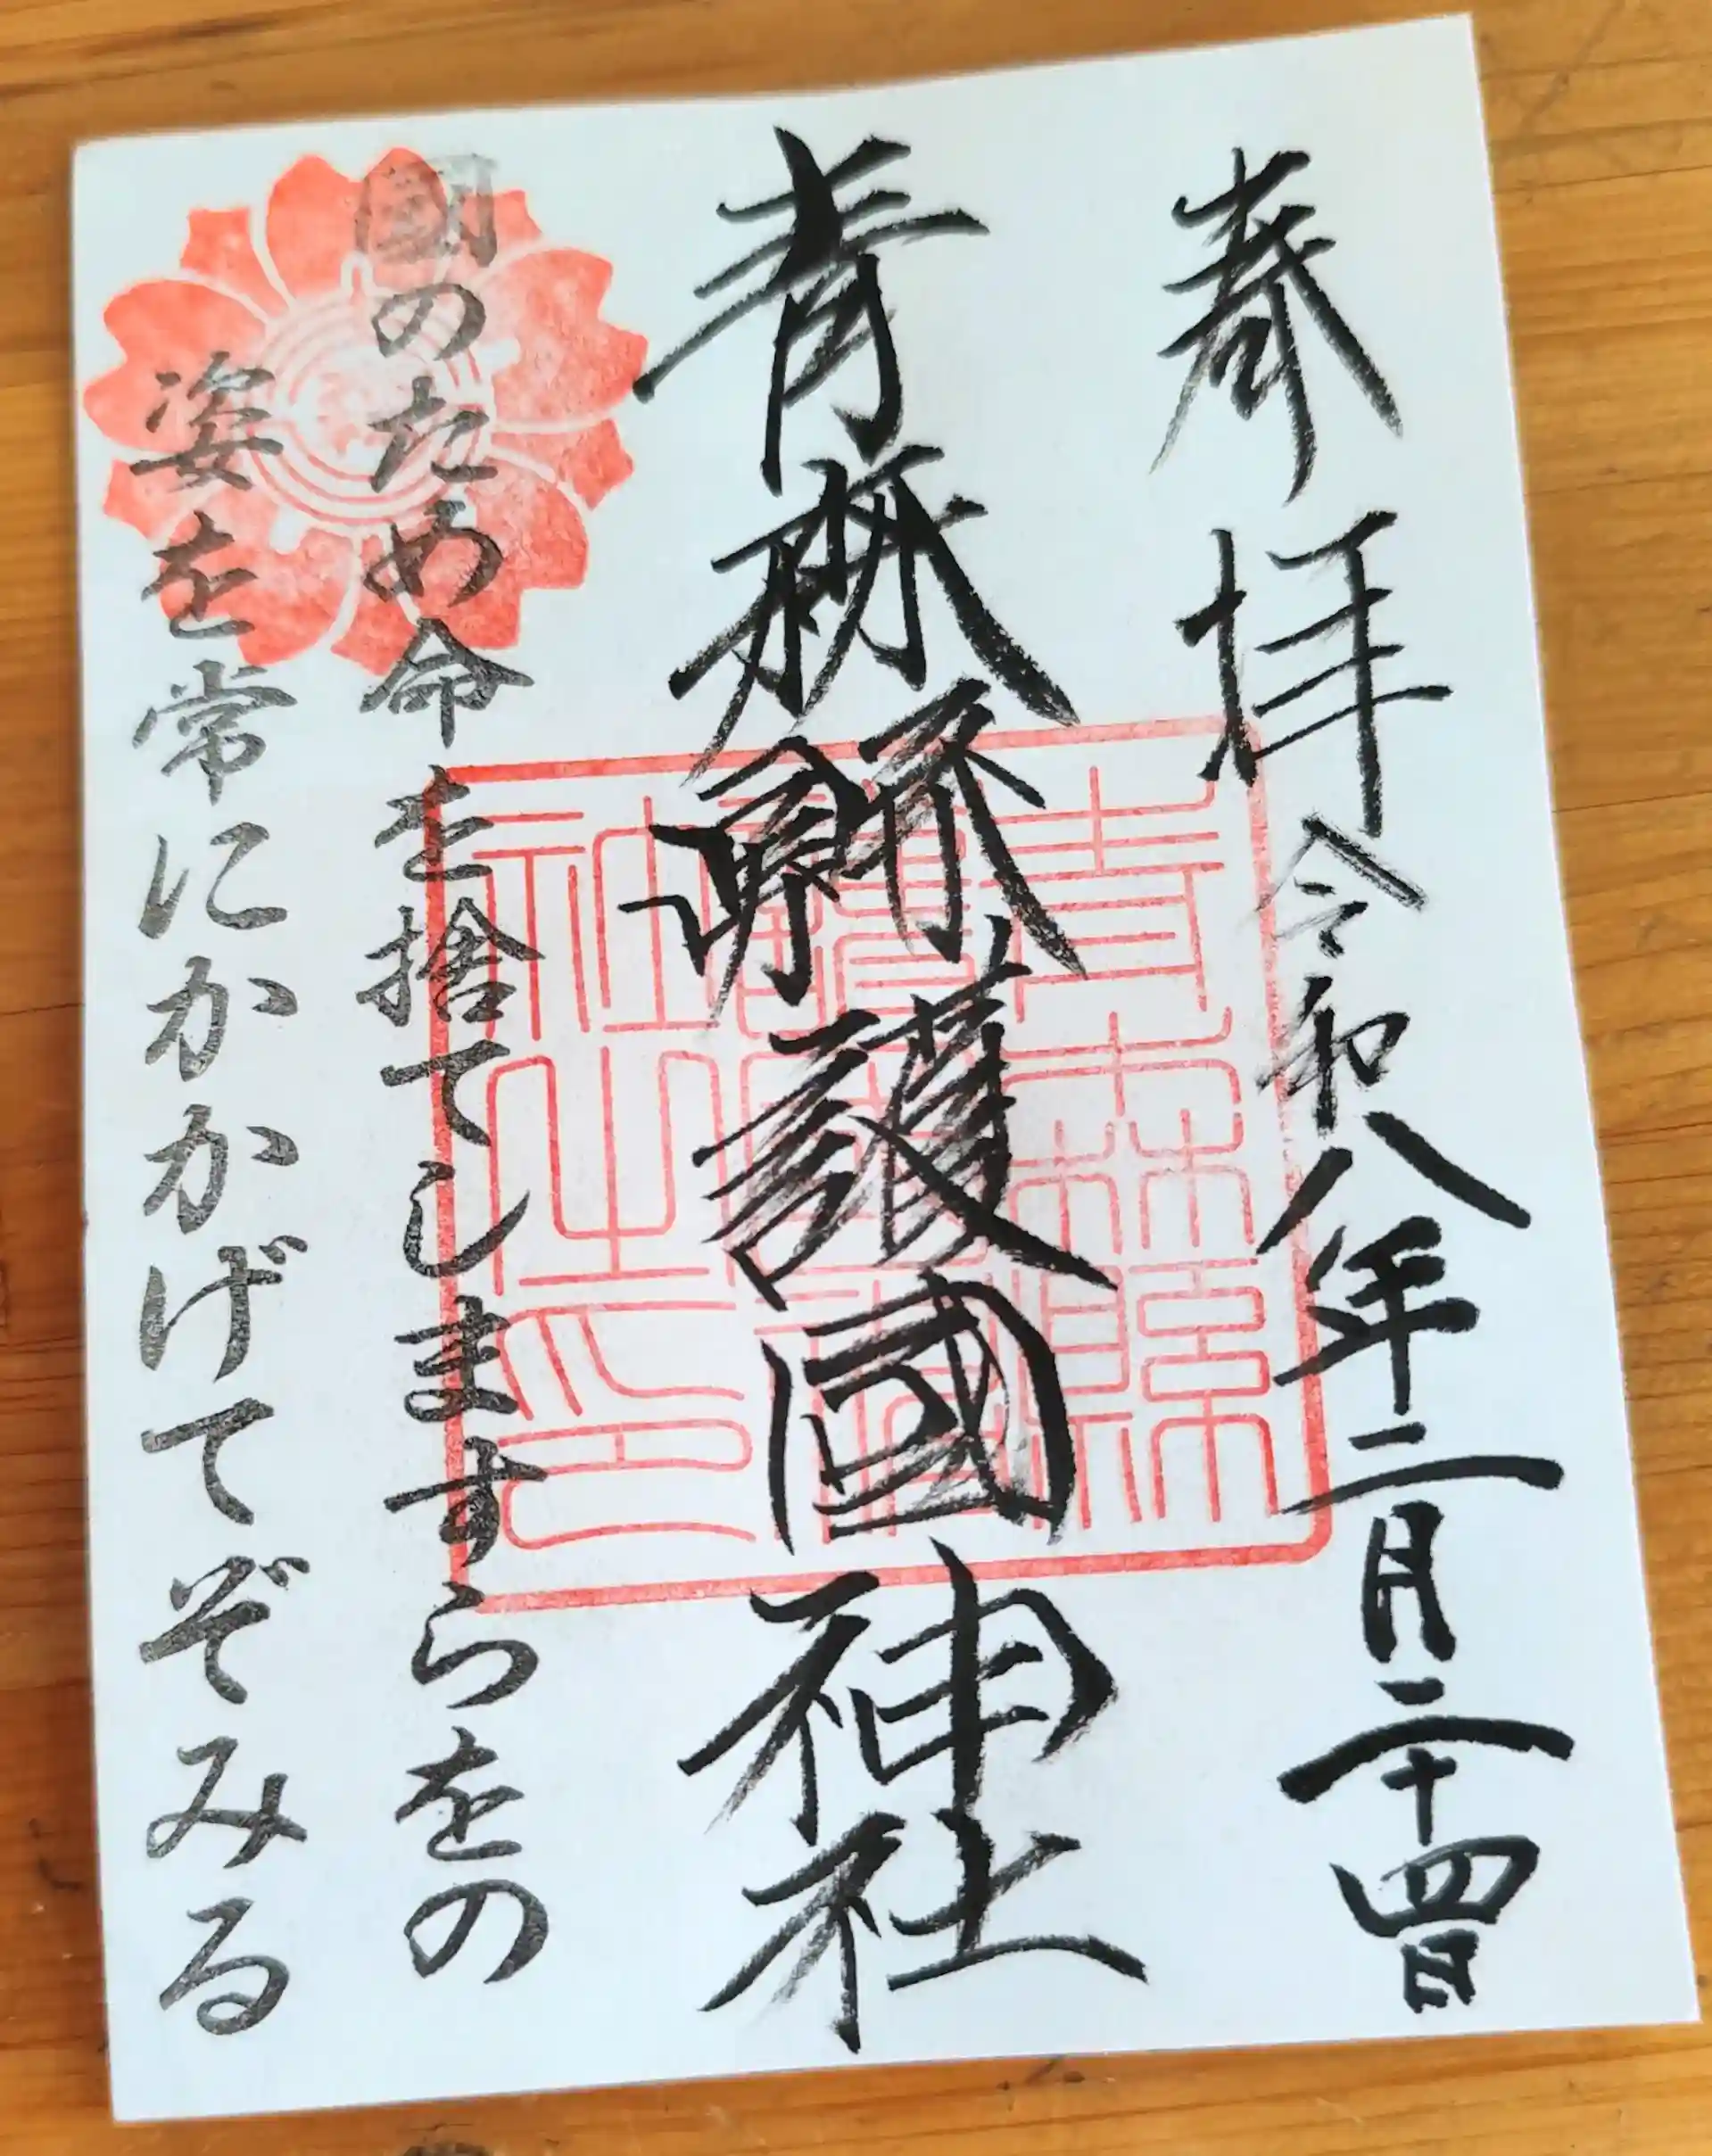 奉拝
令和八年二月二十四日
青森縣護國神社
國のため命を捨てしますらをの
姿を常にかかげてぞみる
青森縣
護國神
社之印